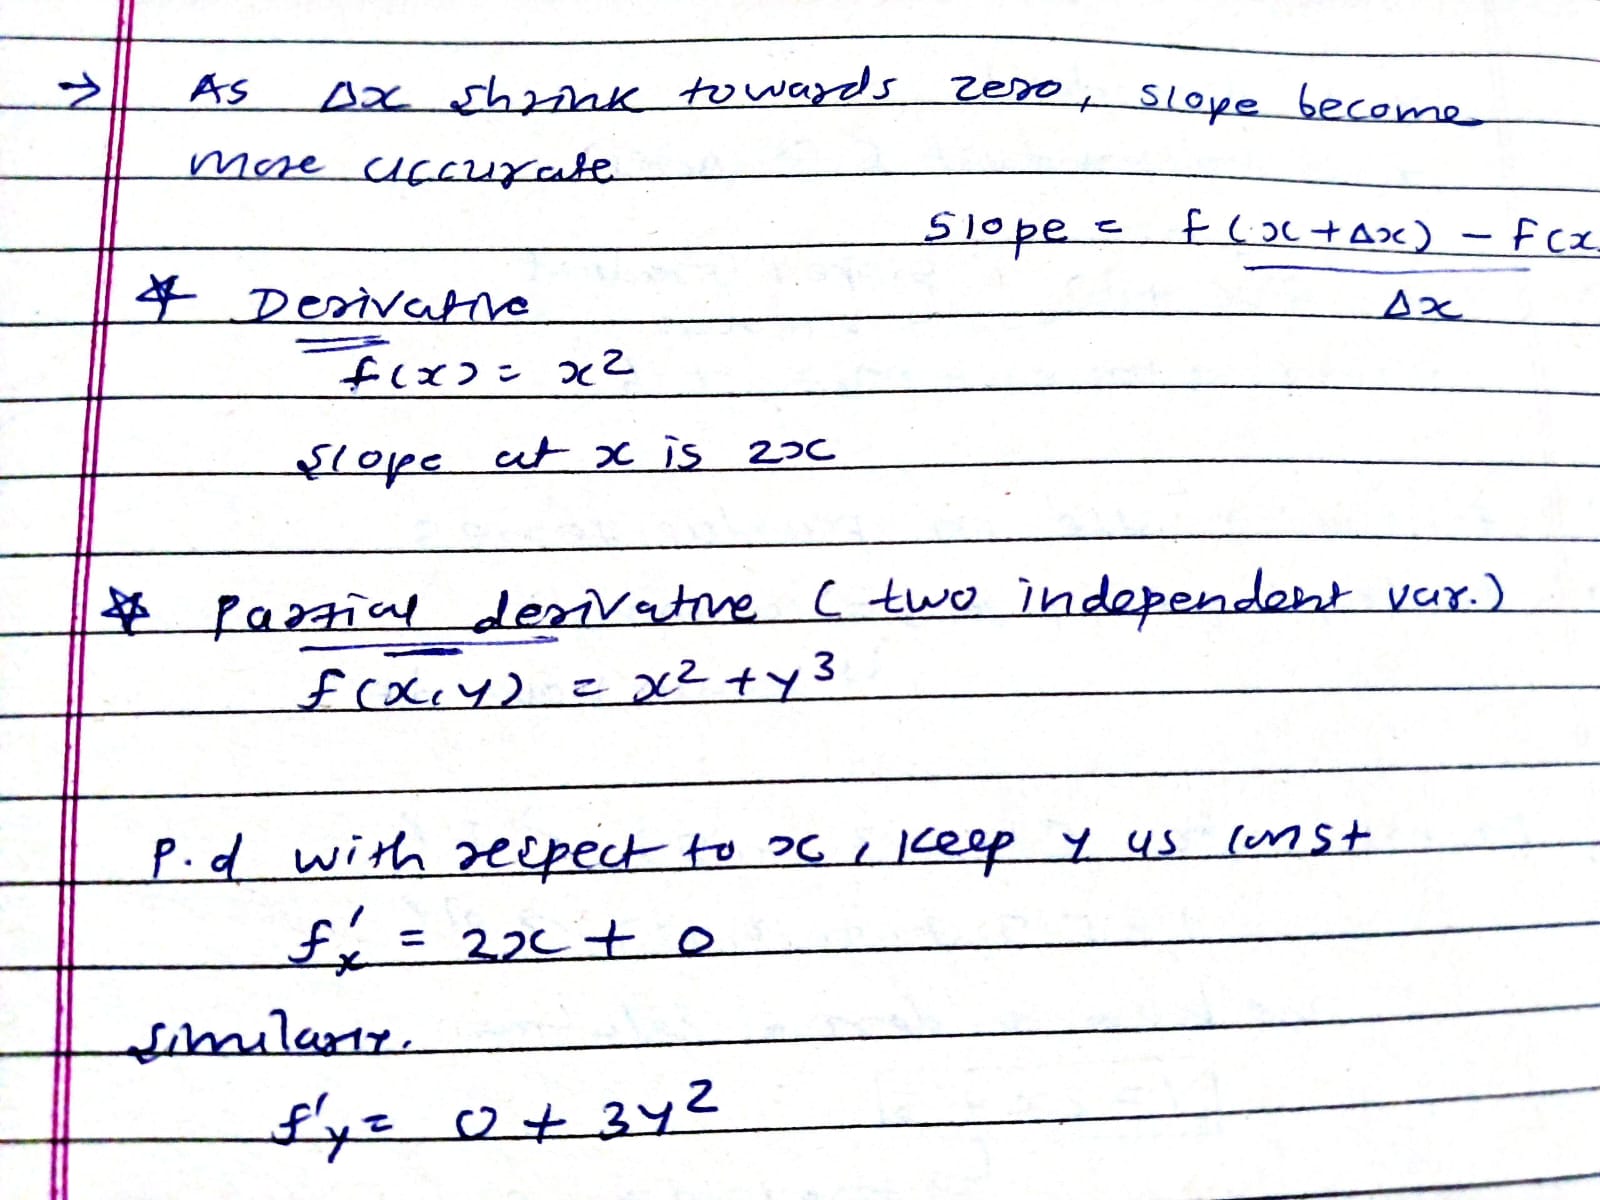 → As Δx shrink towards zero, slope become
more accurate
slope = f(x+Δx) - f(x
Δx
* Derivative
f(x) = x²
slope at x is 2x
* Partial derivative (two independent var.)
f(x,y) = x² + y³
P.d with respect to x, keep y as const
f'x = 2x + 0
similarly.
f'y = 0 + 3y²